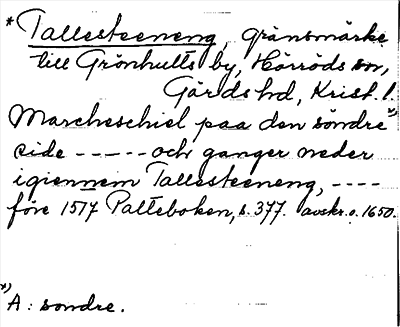 *Tallesteeneng, gränsmärke
till Grönhults by, Hörröds sn,
Gärds hd, Krist. l.
Marcheschiel paa den söndre *)
side ----- och ganger neder
igiennem Tallesteeneng, ----
före 1517 Palteboken, s. 377. avskr. o. 1650.
*)
A: sondre.